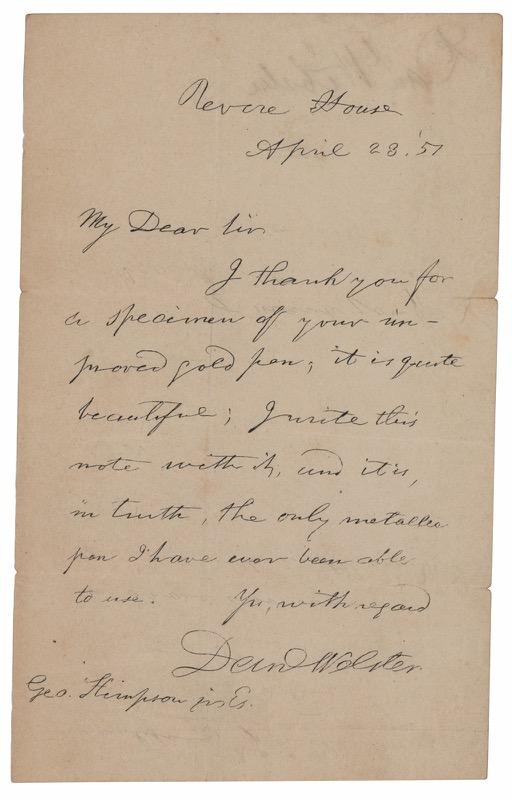 Revere House
April 23. '51
My Dear Sir
I thank you for
a specimen of your im-
proved gold pen; it is quite
beautiful; I write this
note with it, and it is,
in truth, the only metallic
pen I have ever been able
to use. Yrs, with regard
Danl Webster
Geo. Stimpson jr Es.